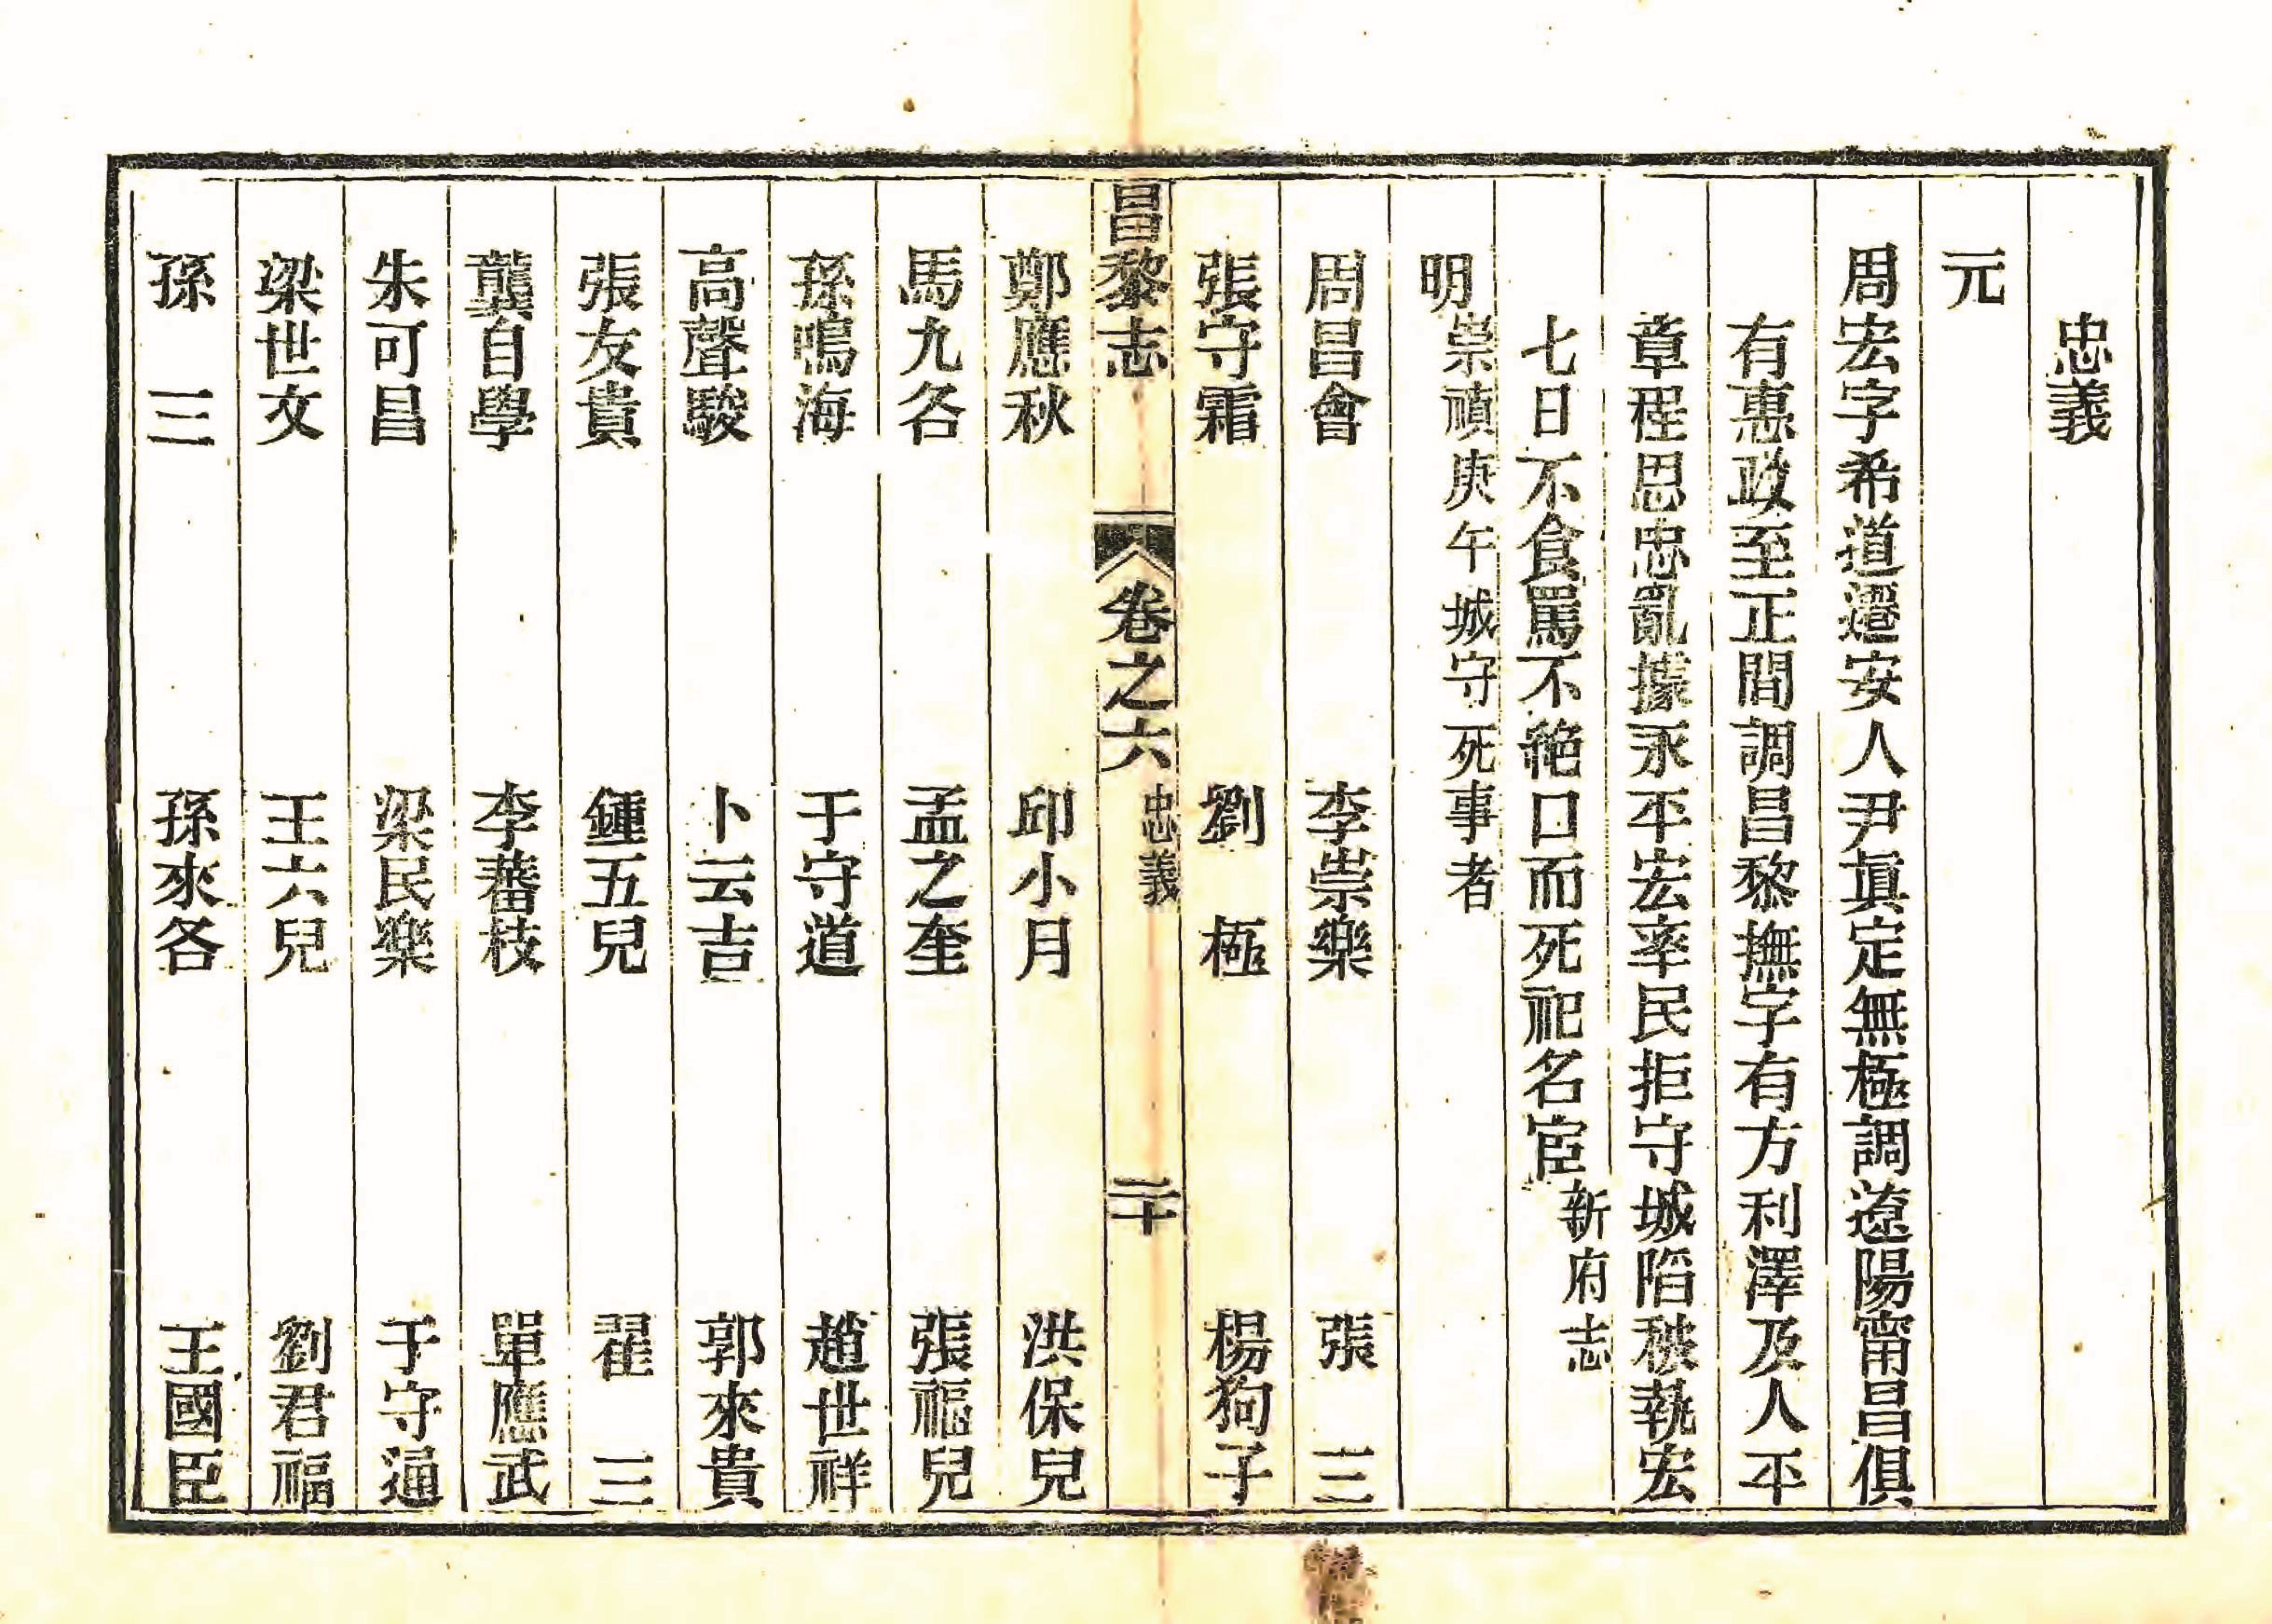 忠義
元
周宏字希道遷安人尹眞定無極調遼陽甯昌俱
有惠政至正間調昌黎撫字有方利澤及人平
章程思忠亂據永平宏率民拒守城陷被執宏
七日不食罵不絕口而死祀名宦新府志
明崇禎庚午城守死事者
周昌會 李崇樂 張三
張守霜 劉極 楊狗子
昌黎志 卷之六 忠義 二十
鄭應秋 邱小月 洪保兒
馬九各 孟之奎 張福兒
孫鳴海 于守道 趙世祥
高聲駿 卜云吉 郭來貴
張友貴 鍾五兒 翟三
龔自學 李蕃枝 單應武
朱可昌 梁民樂 于守通
梁世文 王六兒 劉君福
孫三 孫來各 王國臣